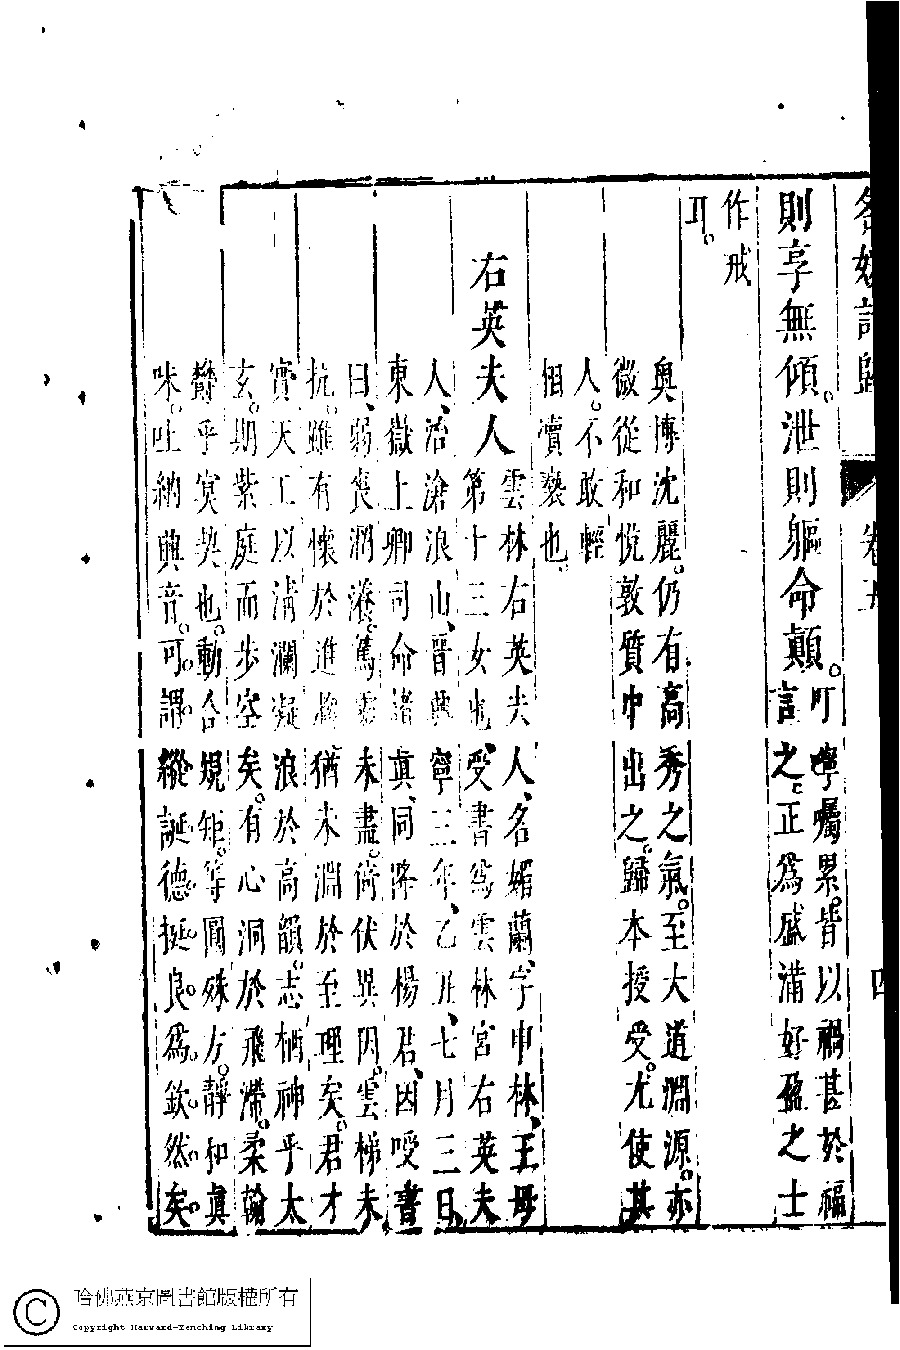 名媛詩歸 卷五 四
則享無傾。泄則軀命顛。叮嚀囑累。皆以禍甚於福
言之。正爲盛滿好盈之士
作戒
耳。
奧博沈麗。仍有高秀之氣。至大道淵源。亦
微從和悅敦質中出之。歸本授受。尤使其
人。不敢輕
相瀆褻也。
右英夫人 雲林右英夫人、名媚蘭、字申林、王母
第十三女也、受書爲雲林宮右英夫
人、治滄浪山、晉興寧三年、乙丑、七月三日、
東嶽上卿司命諸真、同降於楊君、因受書
曰、弱喪。篤靈未盡。倚伏異因。雲梯未
抗。雖有懷於進趣猶未淵於至理矣。君才
實天工以清瀾凝浪於高韻。志栖神乎太
玄。期紫庭而步空矣。有心洞於飛滯。柔翰
鬱乎冥契也。動合規矩。等圓殊方。靜和眞
味。吐納興音。可謂縱誕德挺良爲欽然矣。
哈佛燕京圖書館版權所有
Copyright Harvard-Yenching Library